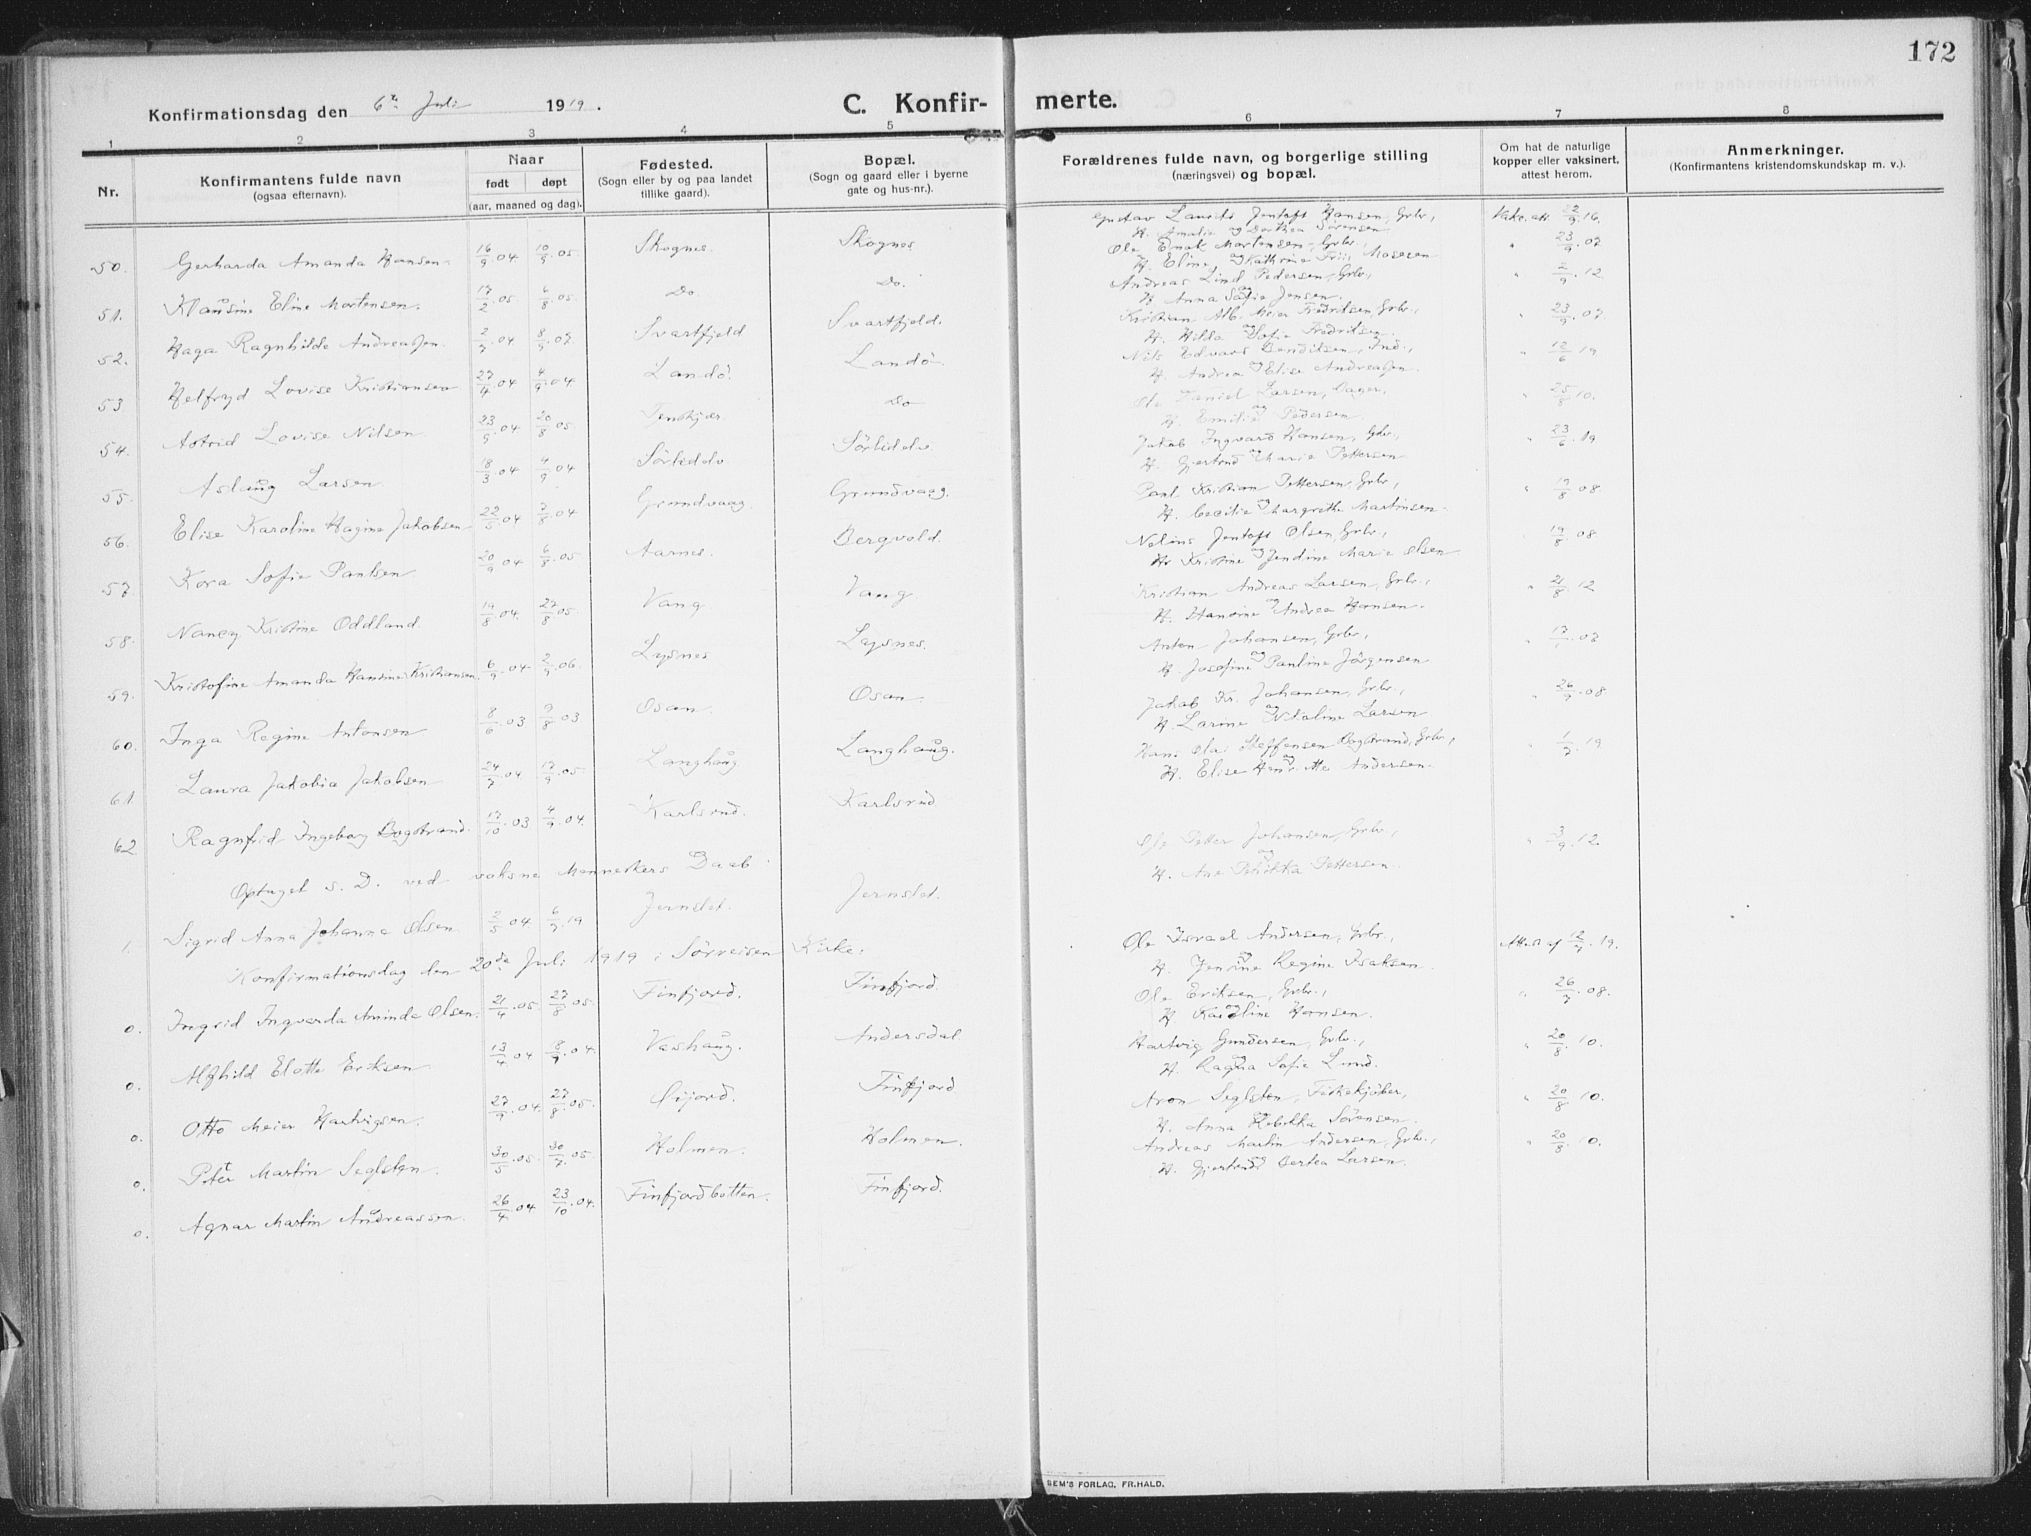 172
Konfirmationsdag den 6te Juli 1919.
C. Konfir- merte.
1 2 3 4 5 6 7 8
Nr.
Konfirmantens fulde navn
(ogsaa efternavn).
Naar
født døpt
(aar, maaned og dag).
Fødested.
(Sogn eller by og paa landet
tillike gaard).
Bopæl.
(Sogn og gaard eller i byerne
gate og hus-nr.).
Forældrenes fulde navn, og borgerlige stilling
(næringsvei) og bopæl.
Om hat de naturlige
kopper eller vaksinert.
attest herom.
Anmerkninger.
(Konfirmantens kristendomskundskap m. v.).
50. Gerharda Amanda Hansen 16/9 04 10/9 05 Skognes. Skognes Gustav Laurits Jentoft Hansen, Grbr, Vakc. att 22/9 16.
H. Amalie og Dorthea Sørensen
51. Klausine Eline Mortensen. 17/2 05 6/8 05 Do. Do. Ole Enok Mortensen, Grbr., " 23/9 07
H. Eline og Kathrine Friis Mosesen
52. Haga Ragnhilde Andreassen. 2/7 04 8/9 07. Svartfjeld Svartfjeld. Andreas Lind Pedersen, Grbr, " 2/9 12
H. Anna og Sofie Jensen.
53 Helfryd Lovise Kristiansen 27/4 04 4/9 04 Landö. Landö Kristian Alb. Meier Fredriksen, Grbr., " 23/9 07
H. Hilda og Sofie Fredriksen.
54. Astrid Lovise Nilsen 23/9 04 20/8 05 Tenskjær Do Nils Edvard Bendiksen, Ind., " 12/6 19
H. Andrea og Elise Andreassen.
55. Aslaug Larsen 18/3 04 4/9 04 Sörlidelv Sörlidelv. Ole Daniel Larsen, " 25/8 10.
H. Emilie og Pedersen
56. Elise Karoline Hagine Jakobsen 22/5 04 7/8 04 Grundvaag Grundvaag. Jakob Ingvard Hansen, Grbr, " 23/6 19
H. Gjertrud og Marie Pettersen
57. Kora Sofie Paulsen 20/9 04 6/8 05 Aarnes. Bergvold. Paul Kristian Pettersen, Grbr, " 17/8 08
H. Cecilie og Margrethe Martinsen
58. Nancy Kristine Oddland. 19/8 04 27/8 05. Vang Vang Nelius Jentoft Olsen, Grbr, 19/8 08
H. Kristine og Jendine Marie Olsen
59. Kristofine Amanda Hansine Kristiansen 6/9 04 2/9 06 Lysnes Lysnes. Kristian Andreas Larsen, Grbr., " 21/8 12
H. Hansine og Andrea Hansen.
60. Inga Regine Antonsen 8/6 03 9/8 03 Osan. Osan Anton Johansen, Grbr, " 07
H. Josefine og Pauline Jörgensen
61. Laura Jakobia Jakobsen 24/7 04 17/9 05 Langhaug Langhaug. Jakob Kr. Johansen, Grbr., " 26/9 08
H. Larine og Nikoline Larsen
62 Ragnfrid Ingeborg Bogstrand 17/10 03 4/9 04. Karlsrud. Karlsrud Hans Olai Steffensen Bogstrand, Grbr, " 1/7 19
H. Elise Henriette Andersen.
Optaget s. D. ved voksne Menneskers Daab
1. Sigrid Anna Johanna Olsen 2/5 04 6/7 19 Jernslet. Jernslet. Ole Petter Johansen, Grbr, " 3/9 12
H. Ane og Petrikka Pettersen.
Konfirmationsdag den 20de Juli 1919 i Sörreisen Kirke:
0. Ingrid Ingvarda Aminda Olsen. 21/4 05 27/8 05. Finfjord. Finfjord. Ole Israel Andersen, Grbr, Attest af 12/7 19.
H. Jensine og Regine Isaksen
0. Alfhild Elotte Eriksen 13/4 04 8/9 04. Vashaug. Andersdal Ole Eriksen, Grbr, " 26/7 08.
H. Karoline og Hansen.
0. Otto Meier Hartvigsen. 27/9 04. 27/8 05. Öijord. Finfjord Hartvig Gundersen, Grbr., " 20/8 10.
H. Ragna og Sofie Lund.
0. Peter Martin Seglsten. 30/5 05. 30/7 05. Holmen. Holmen. Aron Seglsten, Fiskekjöber, " 20/8 10.
H. Anna og Rebekka Sörensen
0. Agnar Martin Andreassen. 26/4 04 23/10 04. Finfjordbotten. Finfjord. Andreas Martin Andersen, Grbr., " 20/8 10.
H. Gjertrud og Bertea Larsen.
SEM'S FORLAG, FR.HALD.